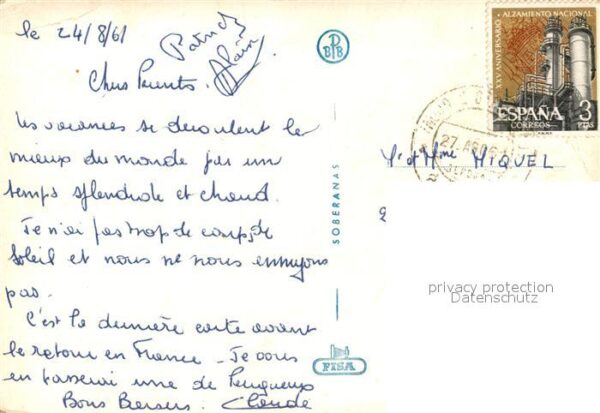 le 24/8/61
Patrick
Alain
Chers Parents.
Les vacances se deroulent le
mieux du monde par un
temps splendide et chaud.
Je n'ai pas trop de coups de
soleil et nous ne nous ennuyons
pas.
C'est la dernière carte avant
le retour en France - Je vous
en passerai une de Perigueux
Bons Baisers. Claude
BPB
SOBERANAS
FISA
XXV ANIVERSARIO - ALZAMIENTO NACIONAL
ESPAÑA
CORREOS
3
PTAS
27 AGO 61
Mr et Mme MIQUEL
privacy protection
Datenschutz